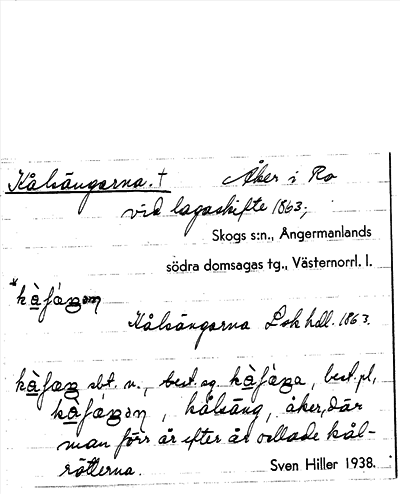 Kålsängarna. † Åker i Ro
vid lagaskifte 1863;
Skogs s:n., Ångermanlands
södra domsagas tg., Västernorrl. l.
Kålsängarna Lskhdl. 1863.
sbt. n., best. sg. , best. pl.
, kålsäng, åker, där
man förr år efter år odlade kål-
rötterna. Sven Hiller 1938.